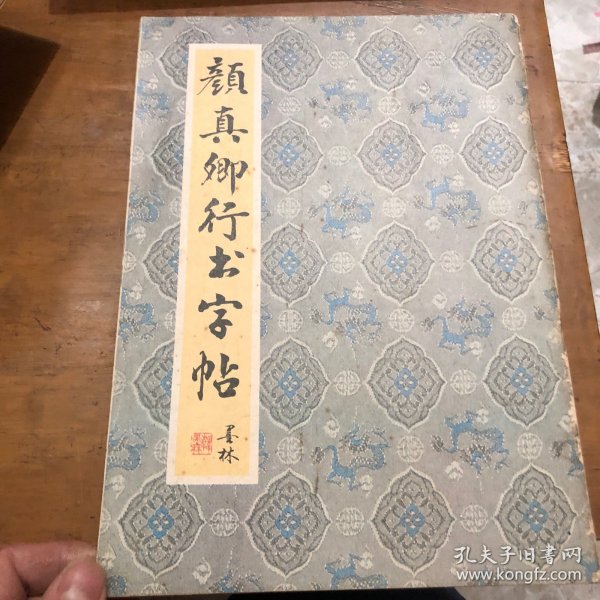 顔真卿行书字帖
墨林
孔夫子旧书网
www.kongfz.com